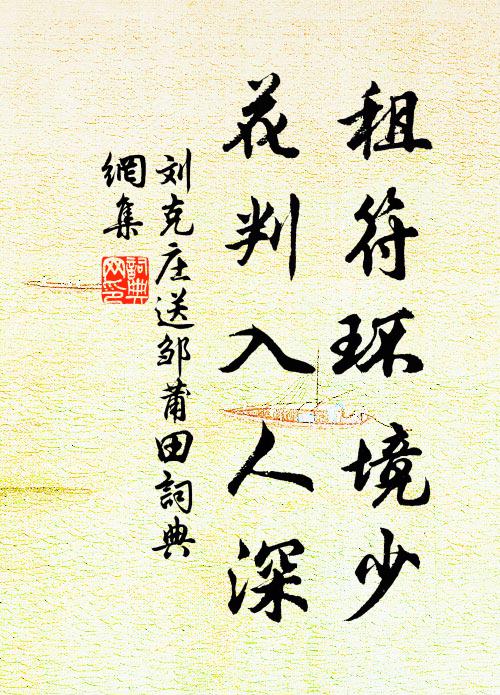 租符环境少
花判入人深
刘克庄送邹莆田詞典
網集
詞典網印